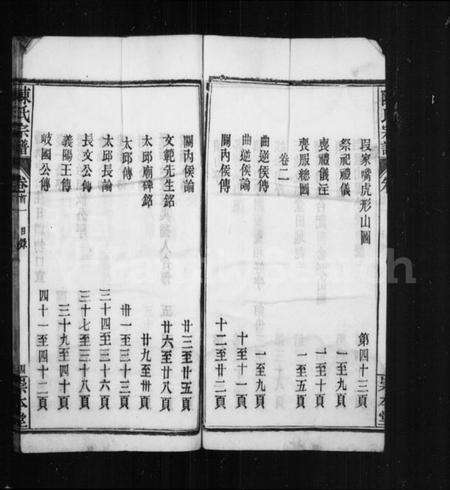 段家嘴虎形山圖 第四十三頁
祭祀禮儀 一至九頁
喪禮儀注 一至十頁
喪服總圖 一至五頁
卷二
曲逆侯傳 一至九頁
曲逆侯論 十至十一頁
關內侯傳 十二至廿二頁
關內侯論 廿三至廿五頁
文範先生銘 廿六至廿八頁
太邱廟碑銘 廿九至卅頁
太邱傳 卅一至三十三頁
太邱長論 三十四至三十六頁
長文公傳 三十七至三十八頁
義陽王傳 三十九至四十頁
岐國公傳 四十一至四十二頁
陳氏宗譜
卷首一
目錄
四
本堂
FamilySearch